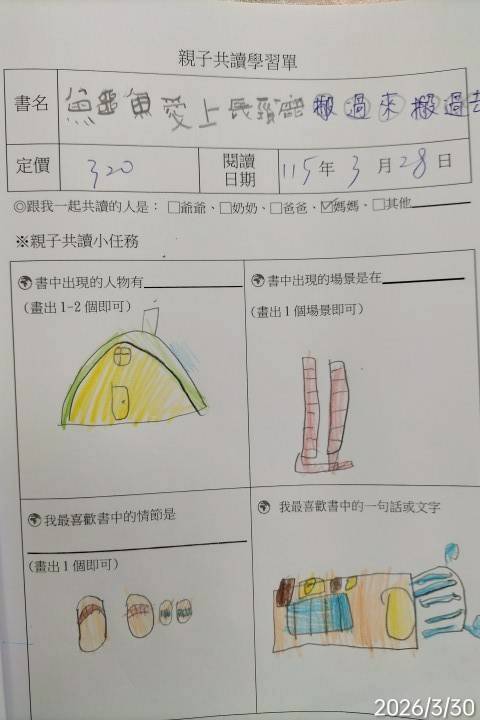 親子共讀學習單
書名 鱼鱷魚愛上長頸鹿 搬過來搬過去
定價 320 閱讀日期 115年 3 月 28 日
◎跟我一起共讀的人是：□爺爺、□奶奶、□爸爸、☑媽媽、□其他
※親子共讀小任務
書中出現的人物有
（畫出 1-2 個即可）
書中出現的場景是在
（畫出 1 個場景即可）
我最喜歡書中的情節是
（畫出 1 個即可）
我最喜歡書中的一句話或文字
2026/3/30